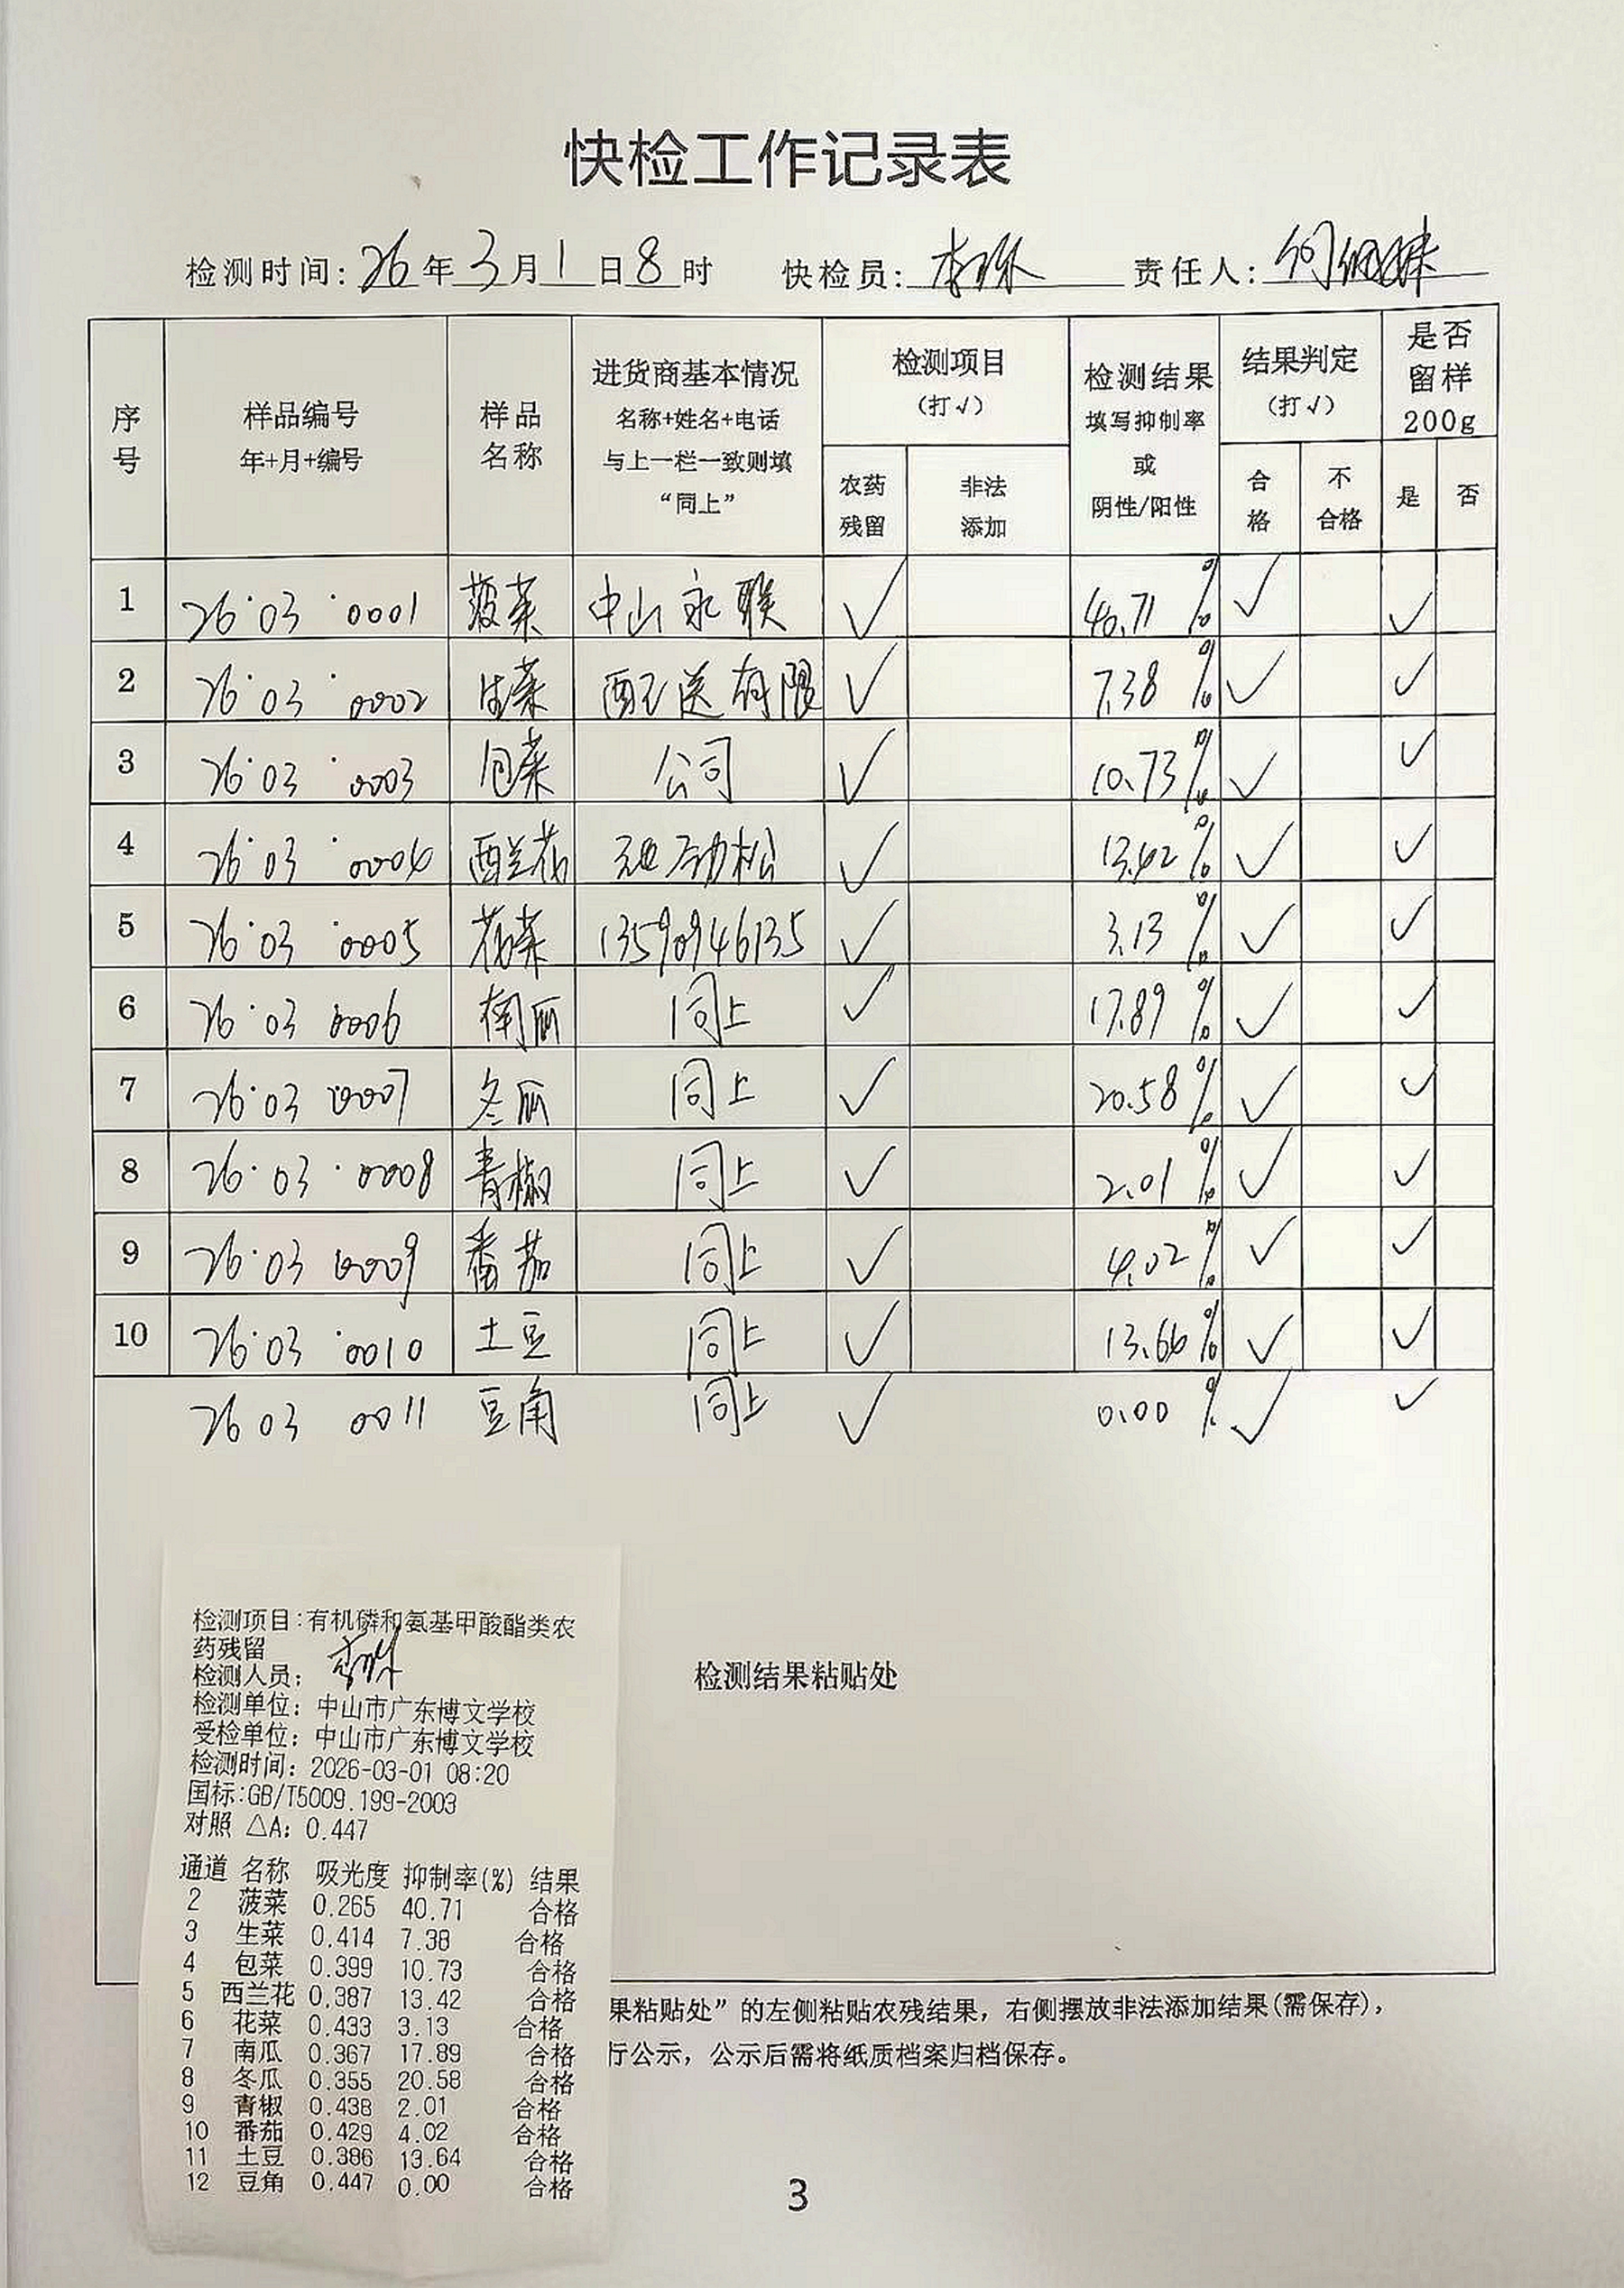 快检工作记录表
检测时间: 26年3月1日8时 快检员: 责任人:
序号 样品编号 年+月+编号 样品名称 进货商基本情况 名称+姓名+电话 与上一栏一致则填“同上” 检测项目(打√) 农药残留 非法添加 检测结果 填写抑制率或阴性/阳性 结果判定(打√) 合格 不合格 是否留样200g 是 否
1 26·03·0001 菠菜 中山永联 √ 40.71% √ √
2 26·03·0002 生菜 配送有限 √ 7.38% √ √
3 26·03·0003 包菜 公司 √ 10.73% √ √
4 26·03·0004 西兰花 劲松 √ 13.42% √ √
5 26·03·0005 花菜 13590946135 √ 3.13% √ √
6 26·03 0006 南瓜 同上 √ 17.89% √ √
7 26·03 0007 冬瓜 同上 √ 20.58% √ √
8 26·03·0008 青椒 同上 √ 2.01% √ √
9 26·03 0009 番茄 同上 √ 4.02% √ √
10 26·03·0010 土豆 同上 √ 13.66% √ √
26 03 0011 豆角 同上 √ 0.00% √ √
检测结果粘贴处
检测项目:有机磷和氨基甲酸酯类农
药残留
检测人员:
检测单位: 中山市广东博文学校
受检单位: 中山市广东博文学校
检测时间: 2026-03-01 08:20
国标:GB/T5009.199-2003
对照 △A: 0.447
通道 名称 吸光度 抑制率(%) 结果
2 菠菜 0.265 40.71 合格
3 生菜 0.414 7.38 合格
4 包菜 0.399 10.73 合格
5 西兰花 0.387 13.42 合格
6 花菜 0.433 3.13 合格
7 南瓜 0.367 17.89 合格
8 冬瓜 0.355 20.58 合格
9 青椒 0.438 2.01 合格
10 番茄 0.429 4.02 合格
11 土豆 0.386 13.64 合格
12 豆角 0.447 0.00 合格
果粘贴处”的左侧粘贴农残结果，右侧摆放非法添加结果(需保存)，
行公示，公示后需将纸质档案归档保存。
3